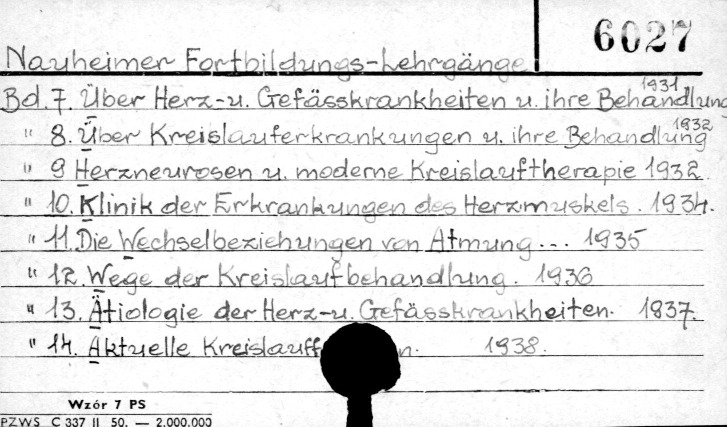 6027
Nauheimer Fortbildungs-Lehrgänge
Bd. 7. Über Herz-u. Gefässkrankheiten u. ihre Behandlung 1931
" 8. Über Kreislauferkrankungen u. ihre Behandlung 1932
" 9 Herzneurosen u. moderne Kreislauftherapie 1932
" 10. Klinik der Erkrankungen des Herzmuskels. 1934.
" 11. Die Wechselbeziehungen von Atmung... 1935
" 12. Wege der Kreislaufbehandlung. 1936
" 13. Ätiologie der Herz-u. Gefässkrankheiten. 1937.
" 14. Aktuelle 1938.
Wzór 7 PS
PZWS C 337 II 50. — 2.000.000